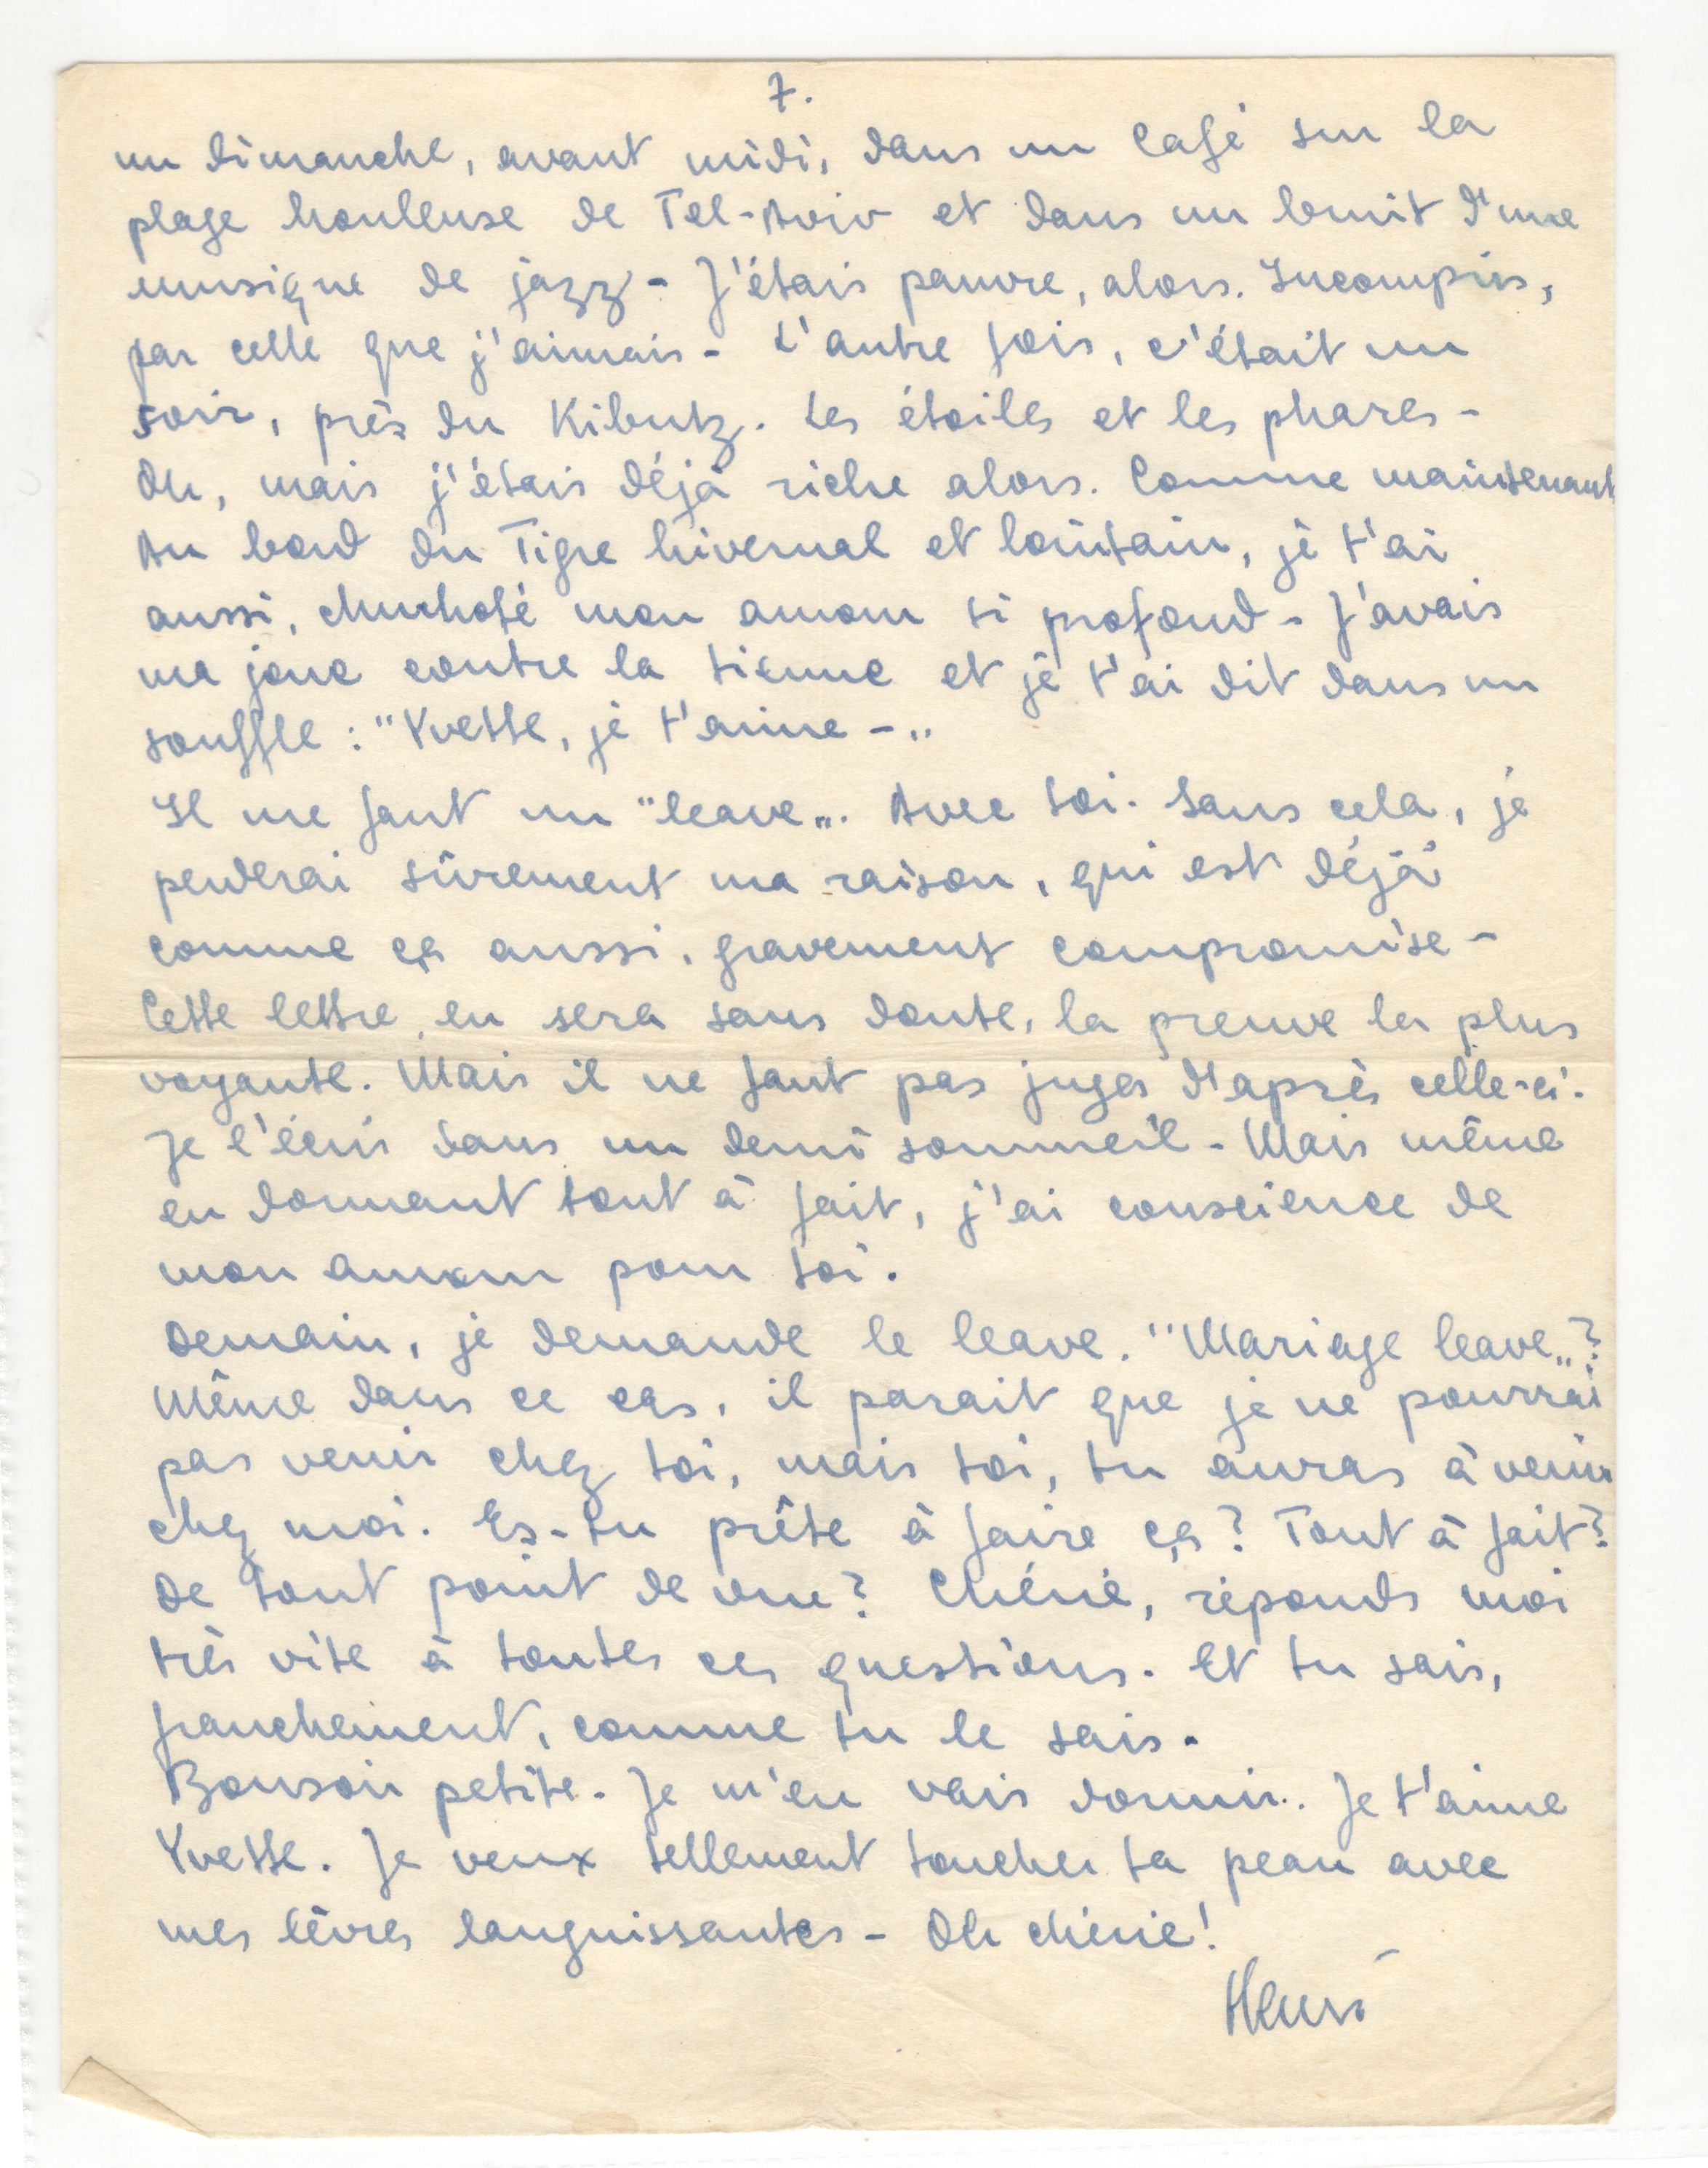 7.
un dimanche, avant midi, dans un Café sur la
plage houleuse de Tel-Aviv et dans un bruit d'une
musique de jazz - J'étais pauvre, alors. Incompris,
par celle que j'aimais - L'autre fois, c'était un
soir, près du Kibutz. Les étoiles et les phares -
Oh, mais j'étais déjà riche alors. Comme maintenant
Au bord du Tigre hivernal et lointain, je t'ai
aussi, chuchoté mon amour si profond - J'avais
ma joue contre la tienne et je t'ai dit dans un
souffle : "Yvette, je t'aime - "
Il me faut un "leave". Avec toi. Sans cela, je
perderai sûrement ma raison, qui est déjà
comme ça aussi, gravement compromise -
Cette lettre, en sera sans doute, la preuve la plus
voyante. Mais il ne faut pas juger d'après celle-ci.
Je l'écris dans un demi sommeil - Mais même
en dormant tout à fait, j'ai conscience de
mon amour pour toi.
Demain, je demande le leave. "Mariage leave"?
Même dans ce cas, il parait que je ne pourrai
pas venir chez toi, mais toi, tu auras à venir
chez moi. Es-tu prête à faire ça? Tout à fait?
De tout point de vue? Chérie, réponds moi
très vite à toutes ces questions. Et tu sais,
franchement, comme tu le sais.
Bonsoir petite. Je m'en vais dormir. Je t'aime
Yvette. Je veux tellement toucher ta peau avec
mes lèvres languissantes - Oh chérie!
Henri